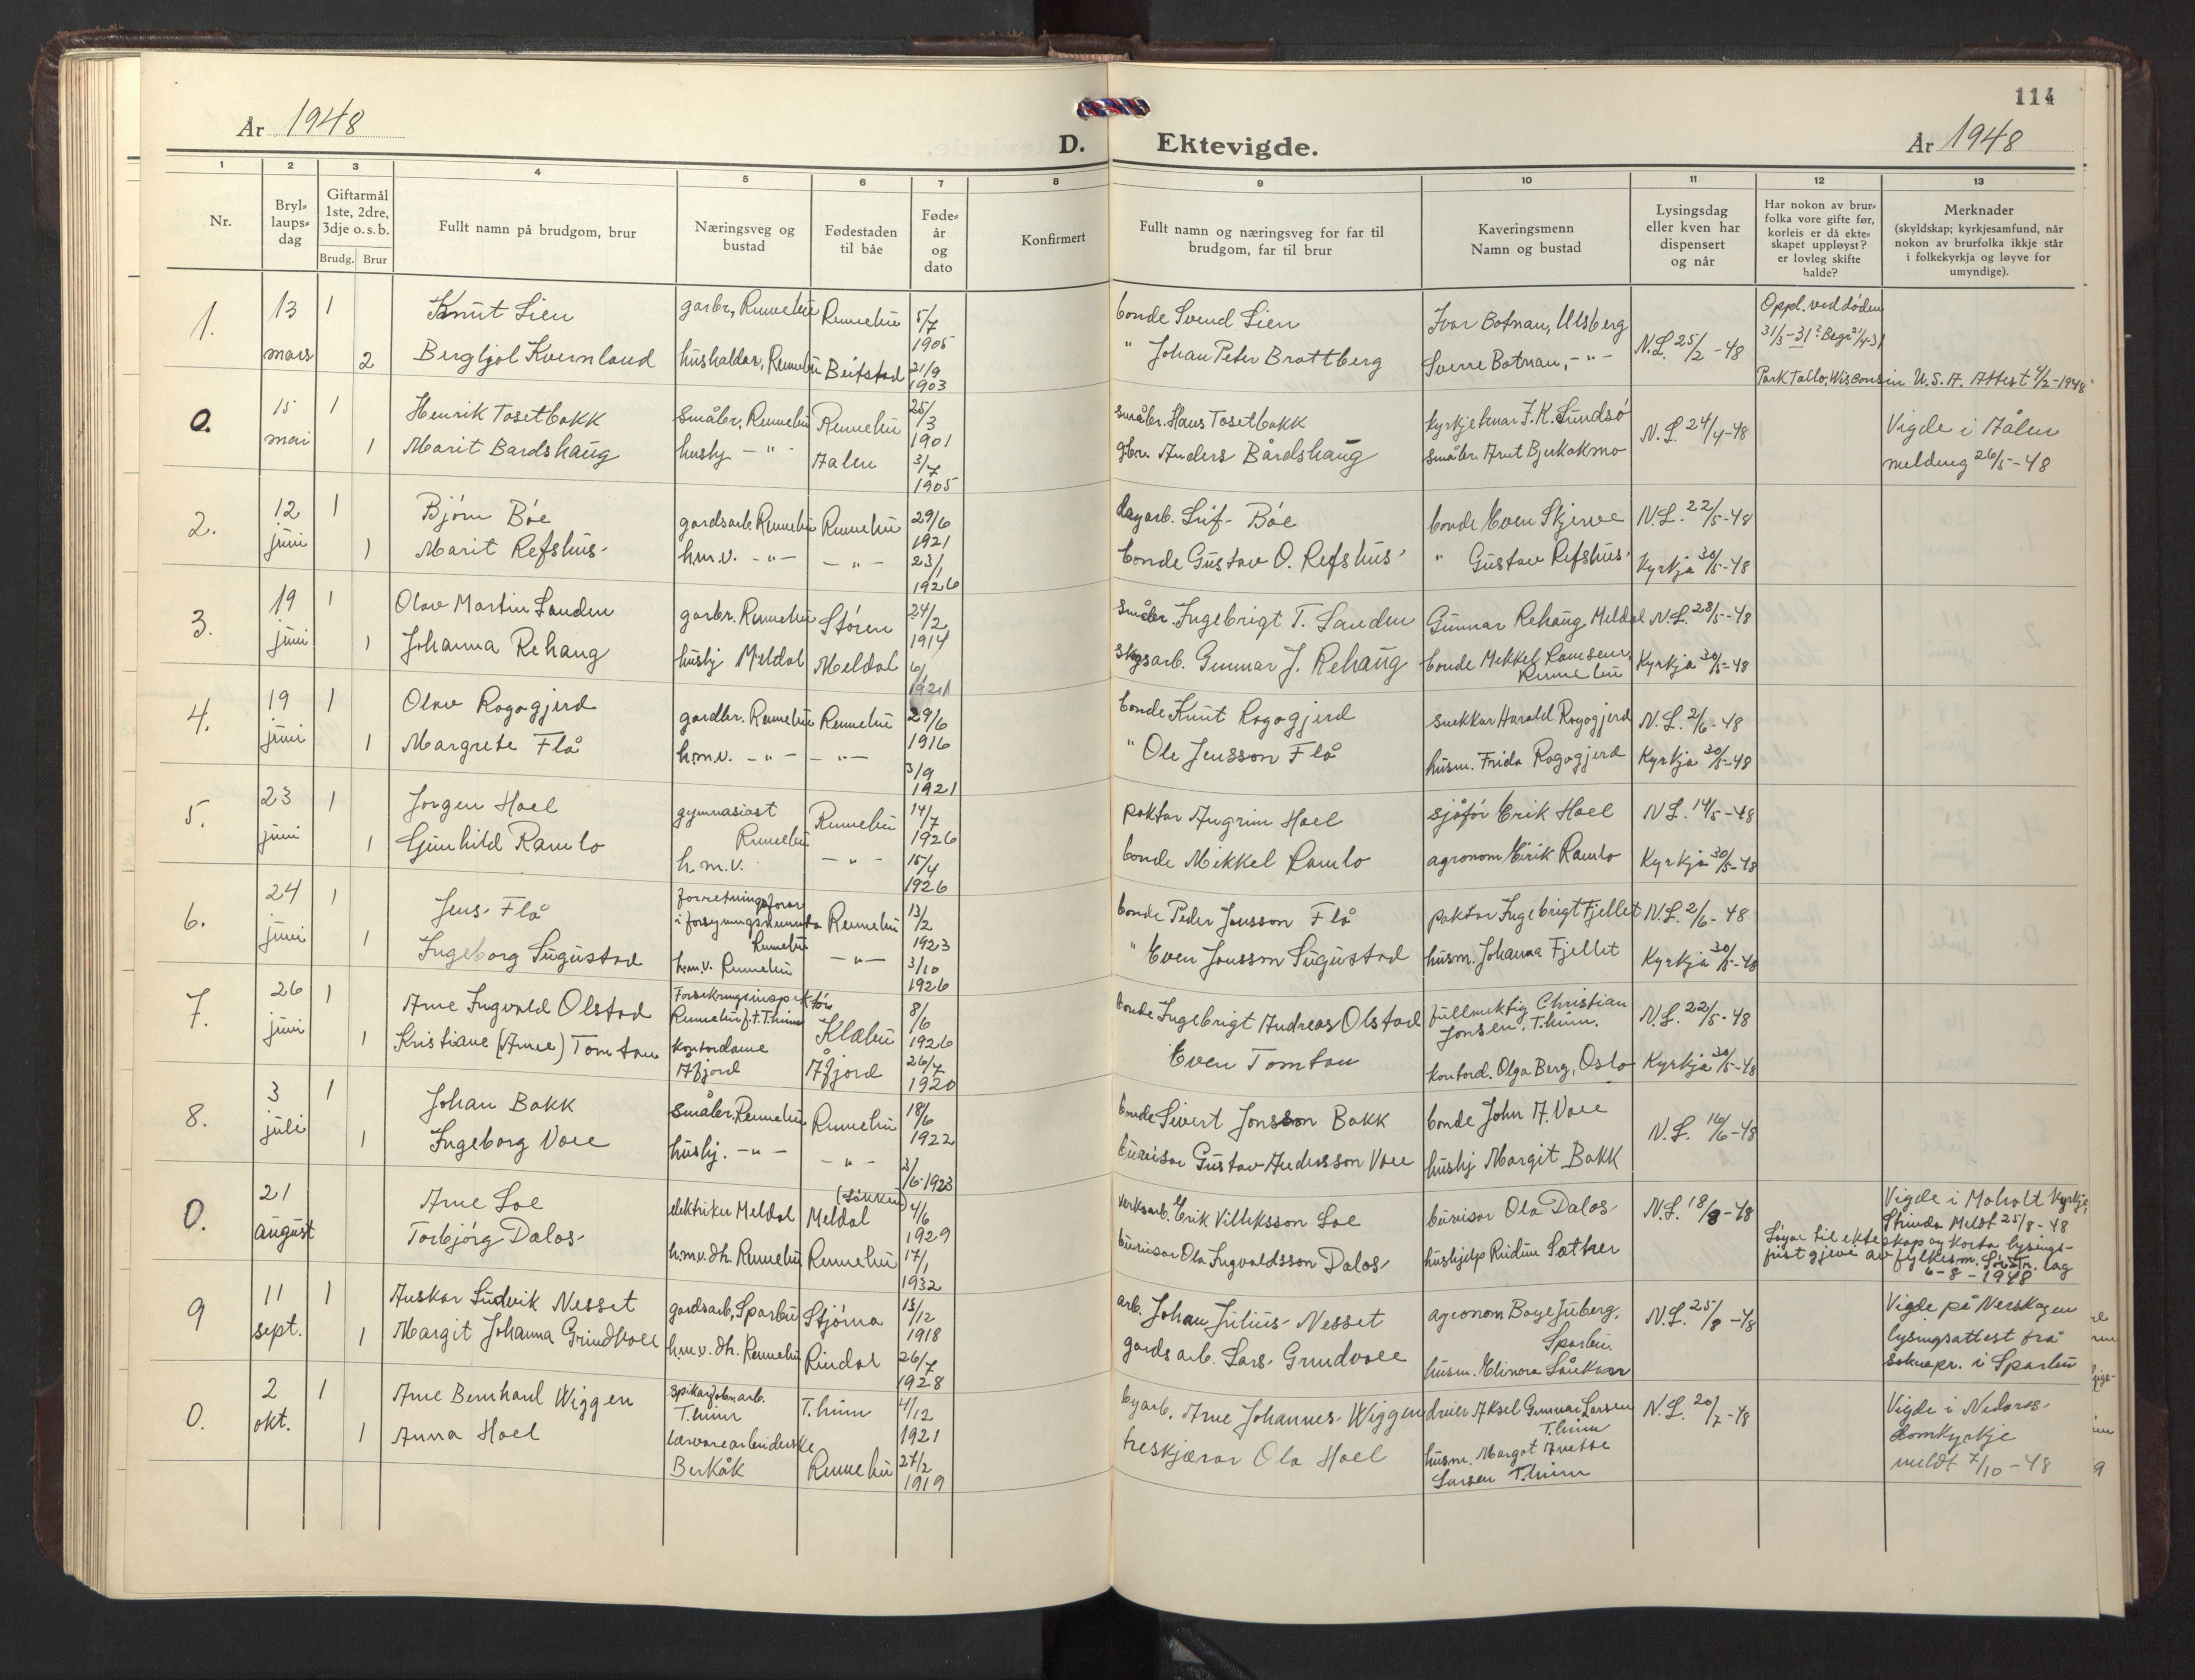 114
År 1948
D. Ektevigde.
År 1948
1 2 3 4 5 6 7 8 9 10 11 12 13
Nr.
Bryl-
laups-
dag
Giftarmål
1ste, 2dre,
3dje o. s. b.
Brudg. Brur
Fullt namn på brudgom, brur
Næringsveg og
bustad
Fødestaden
til båe
Føde-
år
og
dato
Konfirmert
Fullt namn og næringsveg for far til
brudgom, far til brur
Kaveringsmenn
Namn og bustad
Lysingsdag
eller kven har
dispensert
og når
Har nokon av brur-
folka vore gifte før,
korleis er då ekte-
skapet uppløyst?
er lovleg skifte
halde?
Merknader
(skyldskap; kyrkjesamfund, når
nokon av brurfolka ikkje står
i folkekyrkja og løyve for
umyndige).
1. 13 mars
1 Knut Lien garbr., Rennebu Rennebu 5/7 1905
2 Bergljot Kvernland hushaldar, Rennebu Beitstad 21/9 1903
bonde Svend Lien
" Johan Peter Brattberg
Ivar Botnan, Ulsberg
Sverre Botnan, - " -
N.L. 25/2 - 48
Oppl. ved døden
31/3 - 31
Park Falls, Wisconsin U.S.A. Attest 4/2 - 1948
0. 15 mai
1 Henrik Tosetbakk Småbr., Rennebu Rennebu 25/3 1901
1 Marit Bardshaug hushj - " - Aalen 3/7 1905
småbr. Hans Tosetbakk
gbr. Anders Bårdshaug
kyrkjetenar J. K. Sundsø
småbr. Arnt Bjerkåkmo
N.L. 24/4 - 48
Vigde i Ålen
melding 26/5 - 48
2. 12 juni
1 Bjørn Bøe gardsarb. Rennebu Rennebu 29/6 1921
1 Marit Refshus h.m.v. - " - - " - 23/1 1926
dagarb. Leif Bøe
bonde Gustav O. Refshus
bonde Even Skjerve
" Gustav Refshus
N.L. 22/5 - 48
Kyrkja 30/5 - 48
3. 19 juni
1 Olav Martin Landen garbr. Rennebu Støren 24/2 1914
1 Johanna Rehaug hushj Meldal Meldal 6/1 1921
småbr. Ingebrigt T. Landen
skogsarb. Gunnar J. Rehaug
Gunnar Rehaug Meldal
bonde Mekkel Ramsem, Rennebu
N.L. 28/5 - 48
Kyrkja 30/5 - 48
4. 19 juni
1 Olav Rogogjerd gardbr. Rennebu Rennebu 29/6 1916
1 Margrete Flå h.m.v. - " - - " - 3/9 1921
bonde Knut Rogogjerd
" Ole Jensson Flå
snekkar Harald Rogogjerd
husm. Frida Rogogjerd
N.L. 2/6 - 48
Kyrkja 30/5 - 48
5. 23 juni
1 Jørgen Hoel gymnasiast Rennebu Rennebu 14/7 1926
1 Gunhild Ramlo h.m.v. - " - 15/4 1926
poktor Angrim Hoel
bonde Mikkel Ramlo
sjåfør Erik Hoel
agronom Eirik Ramlo
N.L. 14/5 - 48
Kyrkja 30/5 - 48
6. 24 juni
1 Jens Flå forretningsførar i forsyningsnemnda Rennebu Rennebu 13/2 1923
1 Ingeborg Sugustad h.m.v. Rennebu - " - 3/10 1926
bonde Peder Jensson Flå
" Even Jonsson Sugustad
poktor Ingebrigt Fjellet
husm. Johanna Fjellet
N.L. 2/6 - 48
Kyrkja 30/5 - 48
7. 26 juni
1 Arne Ingvald Olstad Forsikringsinspektør Rennebu f.t. T.heim Klæbu 8/6 1926
1 Kristiane (Anne) Tomtan kontordame Åfjord Åfjord 26/7 1920
bonde Ingebrigt Andreas Olstad
Even Tomtan
fullmektig Christian Jonsen, T.heim.
kontord. Olga Berg, Oslo
N.L. 22/5 - 48
Kyrkja 30/5 - 48
8. 3 juli
1 Johan Bakk småbr. Rennebu Rennebu 18/6 1922
1 Ingeborg Voll hushj. - " - - " - 3/6 - 1923
bonde Sivert Jonsson Bakk
bureisar Gustav Andersson Voll
bonde John A. Voll
hushj Margit Bakk
N.L. 16/6 - 48
0. 21 august
Arne Loe elektriker Meldal (Løkken) Meldal 4/6 1929
Torbjørg Dalos h.m.v. dh. Rennebu Rennebu 17/1 1932
verksarb. Erik Villeksson Loe
bureisar Ola Ingvaldsson Dalos
bureisar Ola Dalos
hushjelp Reidun Sæther
N.L. 18/8 - 48
Vigde i Moholt Kyrkje,
Strinda Meldt 25/8 - 48
Løyve til ekteskap og korta lysings-
frist gjeve av fylkesm. i S. Tr.lag
6 - 8 - 1948
9 11 sept.
1 Auskar Ludvik Nesset gardsarb., Sparbu Stjørna 13/12 1918
1 Margit Johanna Grindvoll h.m.v. dh. Rennebu Rindal 26/7 1928
arb. Johan Julius Nesset
gardsarb. Lars Grindvoll
agronom Boye Juberg, Sparbu.
husm. Elinora Låukar
N.L. 25/8 - 48
Vigde på Nerskogen
lysingsattest frå
soknepr. i Sparbu
0. 2 okt.
1 Arne Bernhard Wiggen Spikarfabr.arb. T.heim T.heim 4/12 1921
1 Anna Hoel lærvarearbeiderske Berkåk Rennebu 27/2 1919
byarb. Arne Johannes Wiggen
treskjærar Ola Hoel
dreier Aksel Gunnar Larsen T.heim
husm. Margot Anette Larsen T.heim
N.L. 20/7 - 48
Vigde i Nidaros
domkyrkje
meldt 7/10 - 48